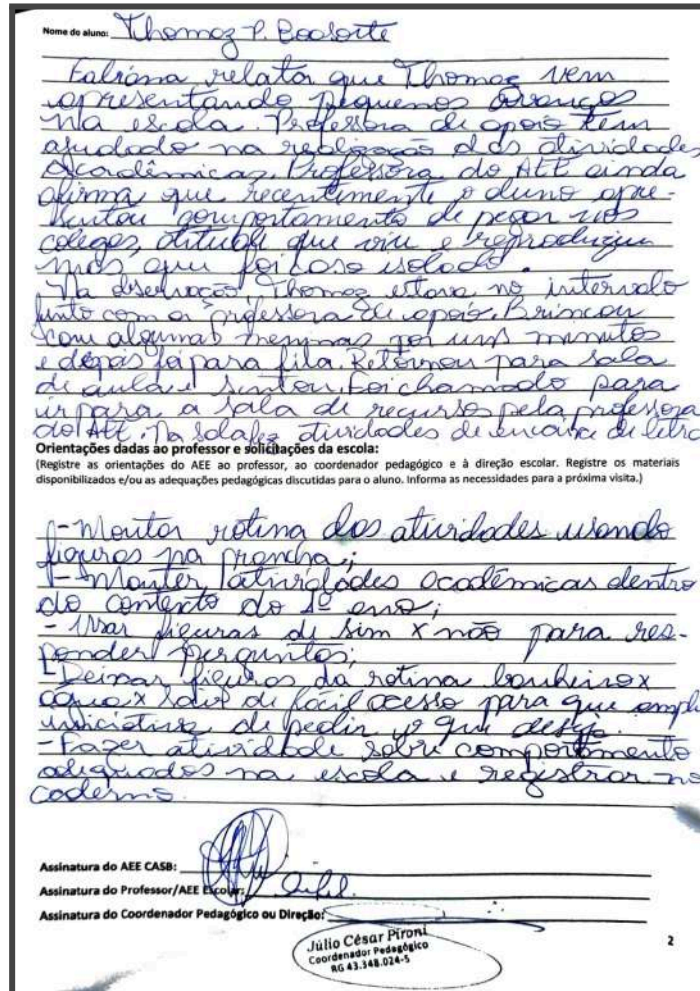 Nome do aluno: Thomaz P. Boasorte
Fabiana relata que Thomaz vem
apresentando pequenos avanços
na escola. Professora de apoio tem
ajudado na realização das atividades
acadêmicas. Professora do AEE ainda
afirma que recentemente o aluno apre-
sentou comportamento de pegar nos
colegas, atitude que viu e reproduziu
mas que foi caso isolado.
Na observação, Thomaz estava no intervalo
junto com a professora de apoio. Brincou
com algumas meninas por uns minutos
e depois foi para fila. Retornou para sala
de aula e sentou. Foi chamado para
ir para a sala de recursos pela professora
do AEE. Na sala fez atividades de encaixe de letra
Orientações dadas ao professor e solicitações da escola:
(Registre as orientações do AEE ao professor, ao coordenador pedagógico e à direção escolar. Registre os materiais
disponibilizados e/ou as adequações pedagógicas discutidas para o aluno. Informa as necessidades para a próxima visita.)
- Montar rotina das atividades usando
figuras na prancha;
- Manter atividades acadêmicas dentro
do contexto do 1º ano;
- Usar figuras de sim x não para res-
ponder perguntas;
- Deixar figuras da rotina banheiro x
água x sair de fácil acesso para que ampli
iniciativa de pedir o que deseja.
- Fazer atividade sobre comportamento
adequados na escola e registrar no
caderno.
Assinatura do AEE CASB:
Assinatura do Professor/AEE Escolar:
Assinatura do Coordenador Pedagógico ou Direção:
Júlio César Pironi
Coordenador Pedagógico
RG 43.348.024-5
2